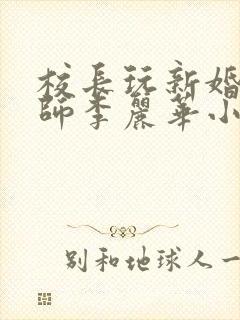 校長玩新婚
師李麗華小
别和地球人一